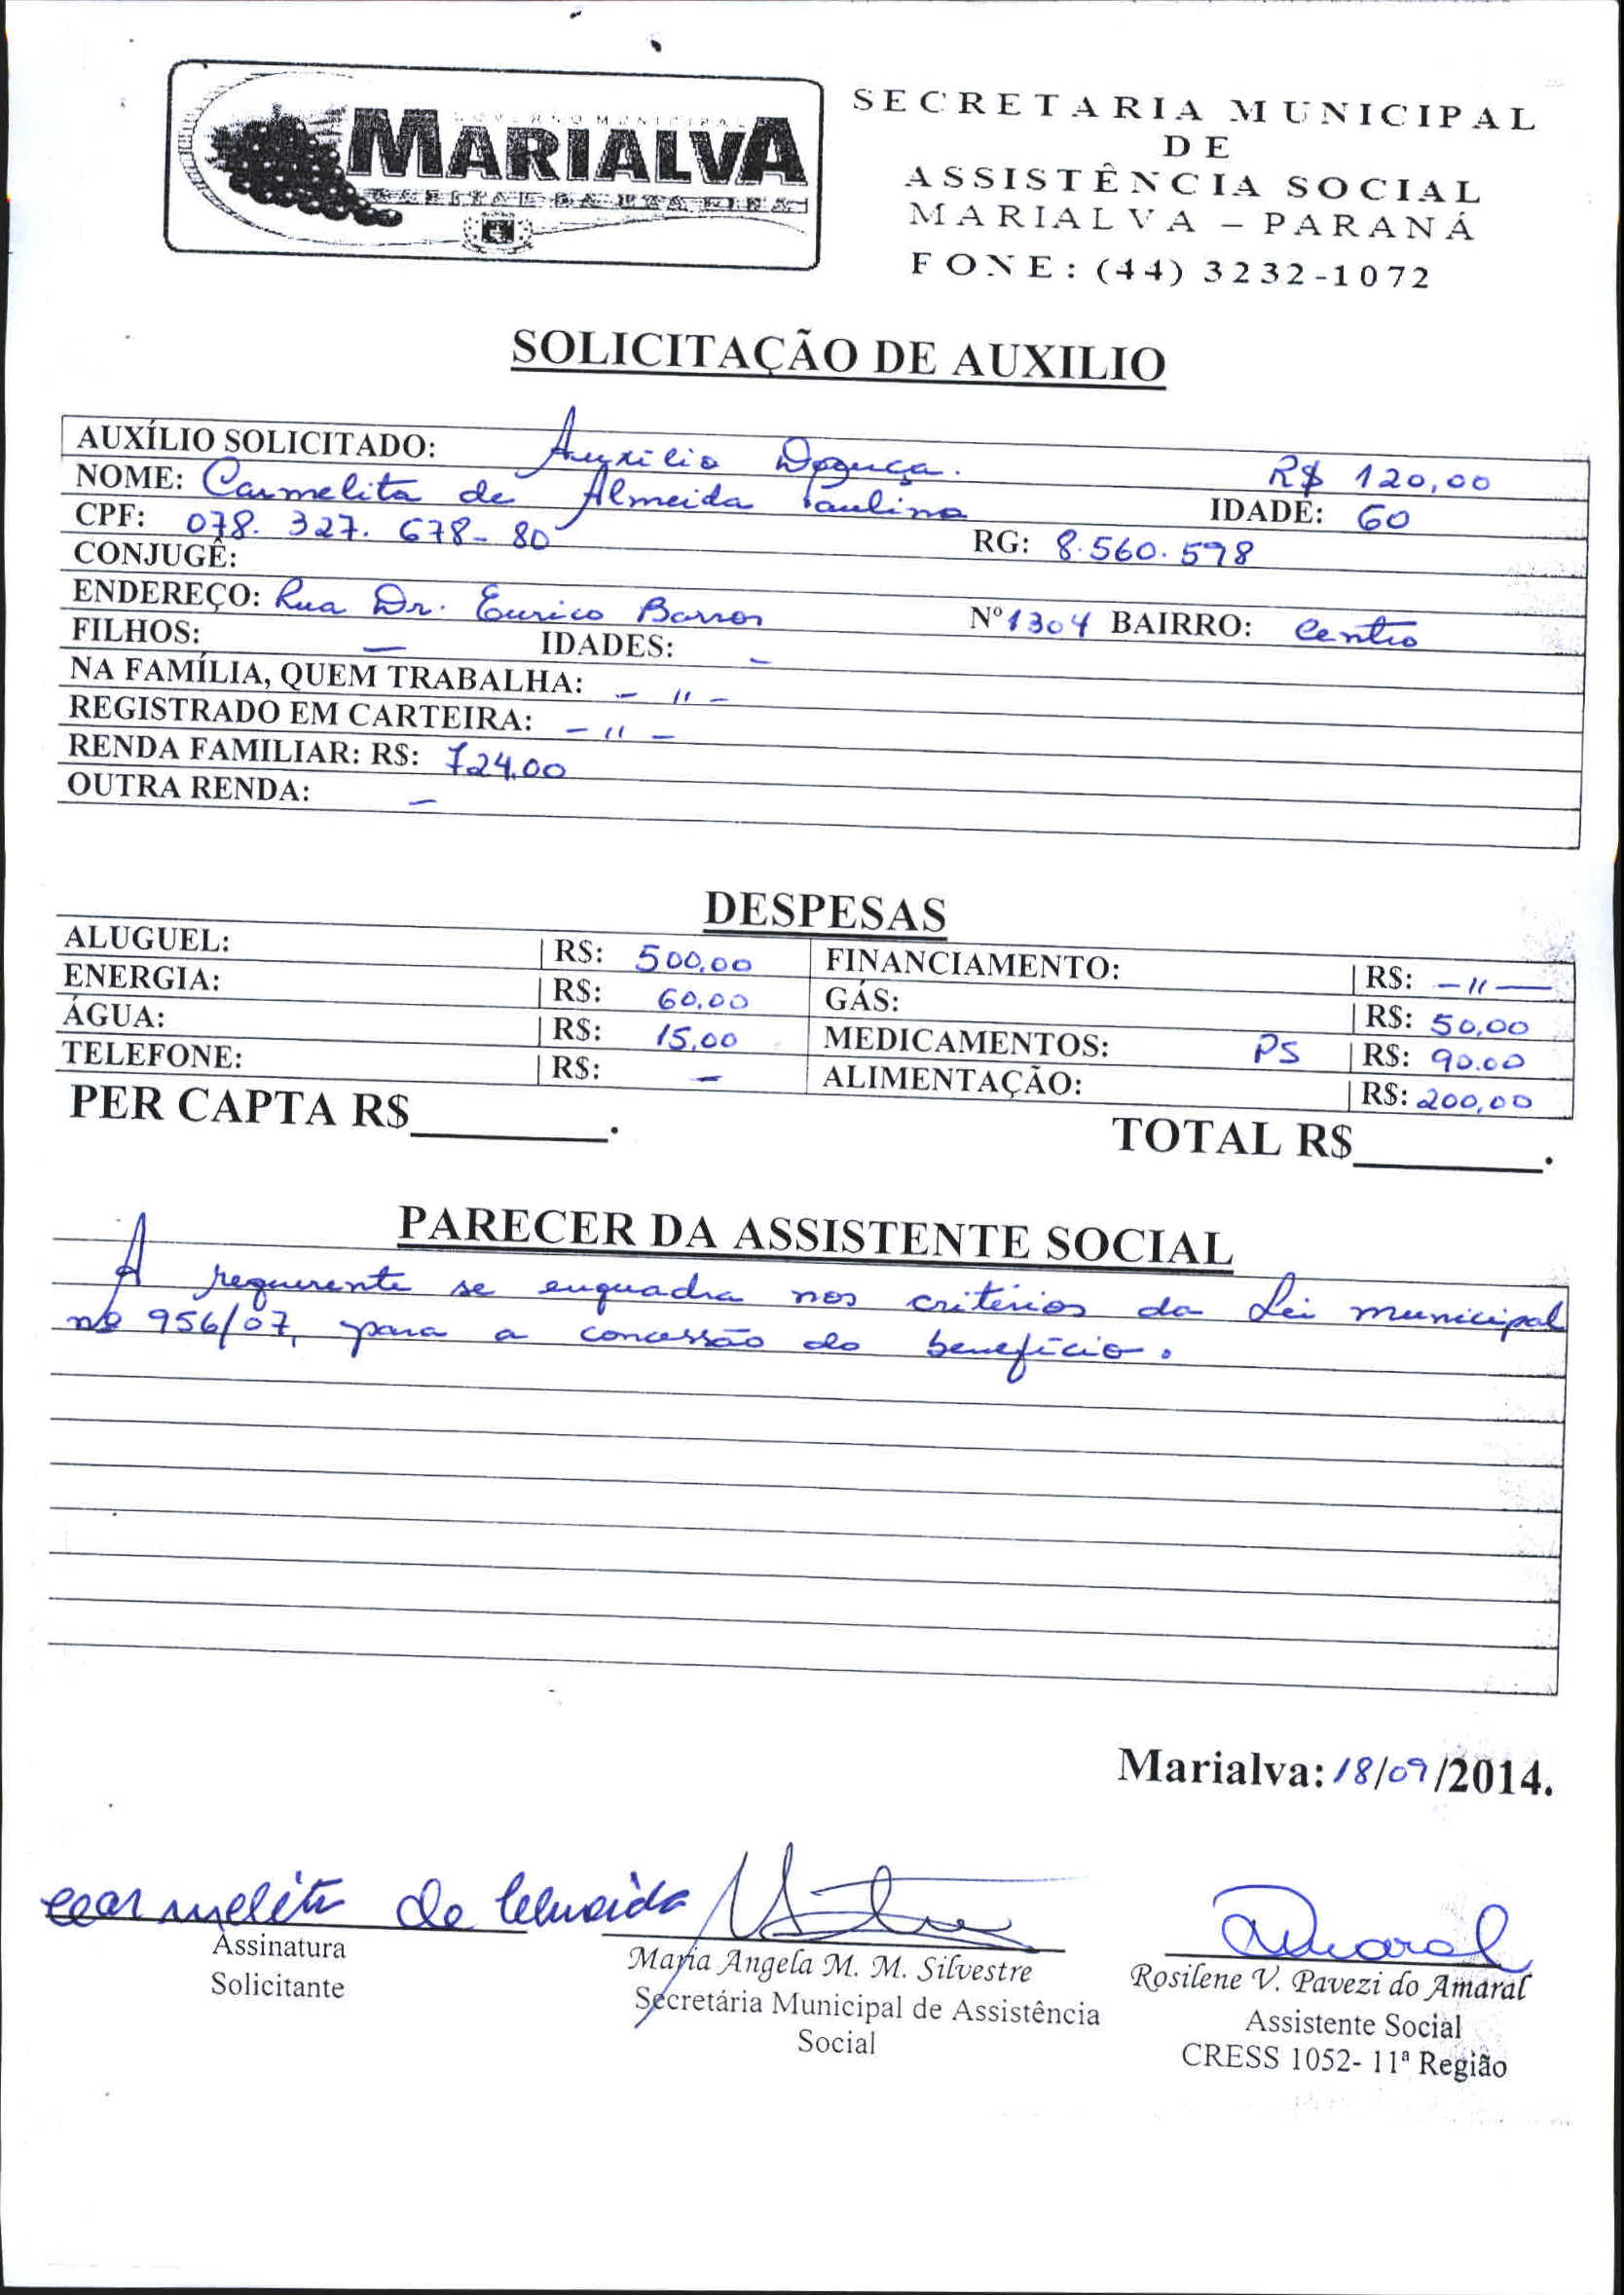 GOVERNO MUNICIPAL
MARIALVA
SECRETARIA MUNICIPAL
DE
ASSISTÊNCIA SOCIAL
MARIALVA – PARANÁ
FONE: (44) 3232-1072
SOLICITAÇÃO DE AUXILIO
AUXÍLIO SOLICITADO: Auxílio Doença. R$ 120,00
NOME: Carmelita de Almeida Paulino IDADE: 60
CPF: 078.327.678-80 RG: 8.560.598
CONJUGÊ:
ENDEREÇO: Rua Dr. Eurico Barros Nº 1304 BAIRRO: Centro
FILHOS: — IDADES: -
NA FAMÍLIA, QUEM TRABALHA: - " -
REGISTRADO EM CARTEIRA: - " -
RENDA FAMILIAR: R$: 724,00
OUTRA RENDA: —
DESPESAS
ALUGUEL: R$: 500,00 FINANCIAMENTO: R$: - " —
ENERGIA: R$: 60,00 GÁS: R$: 50,00
ÁGUA: R$: 15,00 MEDICAMENTOS: PS R$: 90,00
TELEFONE: R$: - ALIMENTAÇÃO: R$: 200,00
PER CAPTA R$________. TOTAL R$________.
PARECER DA ASSISTENTE SOCIAL
A requerente se enquadra nos critérios da Lei municipal
nº 956/07, para a concessão do benefício.
Marialva: 18/09/2014.
Carmelita de Almeida
Amaral
Assinatura
Solicitante
Maria Angela M. M. Silvestre
Secretária Municipal de Assistência
Social
Rosilene V. Pavezi do Amaral
Assistente Social
CRESS 1052- 11ª Região